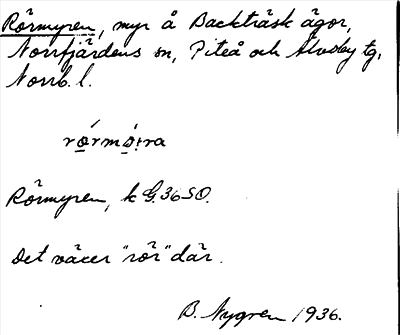 Rörmyren, myr å Backträsk ägor,
Norrfjärdens sn, Piteå och Älvsby tg,
Norrb. l.
Rörmyren, k G. 36 SO.
Det växer "rör" där.
B. Nygren 1936.